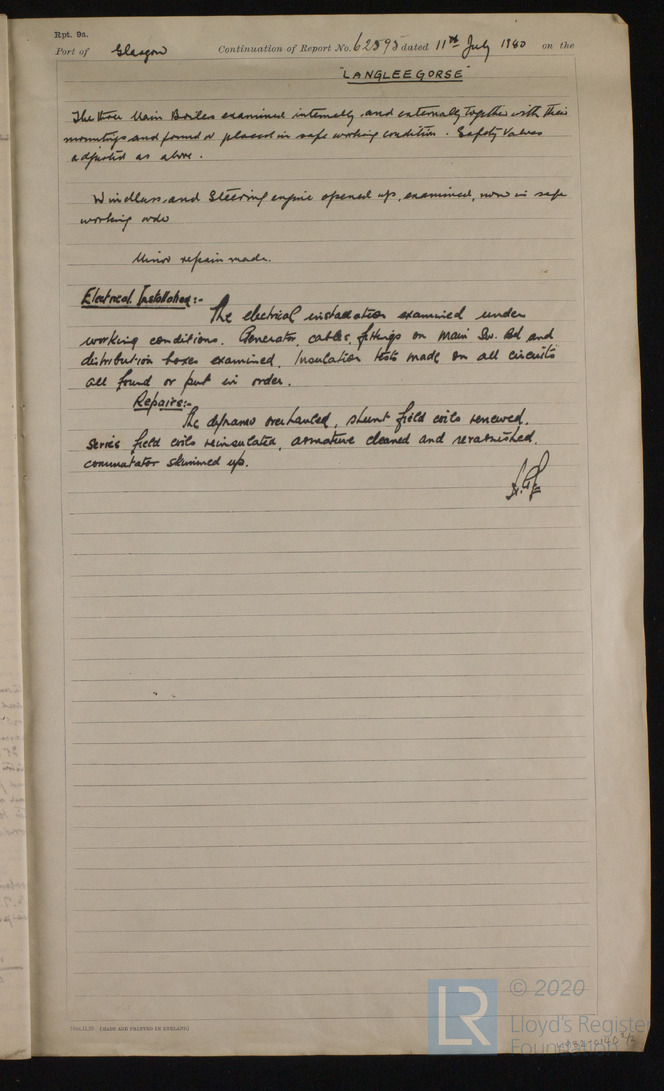 Rpt. 9a.
Port of Glasgow Continuation of Report No. 62595 dated 11th July 1940 on the
"LANGLEEGORSE"
The three Main Boilers examined internally and externally together with their
mountings and found or placed in safe working condition. Safety Valves
adjusted as above.
Windlass and Steering engine opened up, examined, now in safe
working order
Minor repairs made.
Electrical Installation:-
The electrical installation examined under
working conditions. Generator, cables, fittings on Main Sw. Bd and
distribution boxes examined. Insulation tests made on all circuits
all found or put in order.
Repairs:-
The dynamo overhauled, shunt field coils renewed.
Series field coils reinsulated, armature cleaned and revarnished.
commutator skimmed up.
(MADE AND PRINTED IN ENGLAND)
© 2020
LR
Lloyd's Register
Foundation